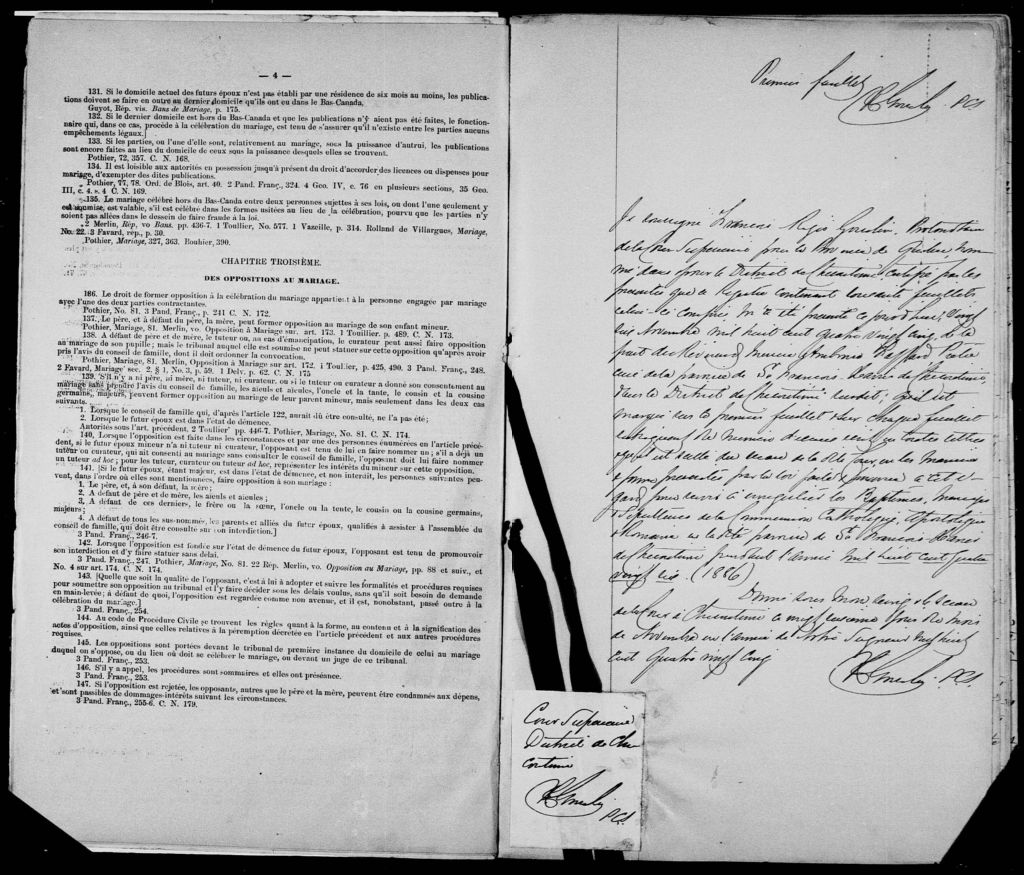 — 4 —
131. Si le domicile actuel des futurs époux n'est pas établi par une résidence de six mois au moins, les publica-
tions doivent se faire en outre au dernier domicile qu'ils ont eu dans le Bas-Canada.
Guyot, Rép. vis. Bans de Mariage, p. 175.
132. Si le dernier domicile est hors du Bas-Canada et que les publications n'y aient pas été faites, le fonction-
naire qui, dans ce cas, procède à la célébration du mariage, est tenu de s'assurer qu'il n'existe entre les parties aucuns
empêchements légaux.]
133. Si les parties, ou l'une d'elle sont, relativement au mariage, sous la puissance d'autrui, les publications
sont encore faites au lieu du domicile de ceux sous la puissance desquels elles se trouvent.
Pothier, 72, 357. C. N. 168.
134. Il est loisible aux autorités en possession jusqu'à présent du droit d'accorder des licences ou dispenses pour
mariage, d'exempter des dites publications.
Pothier, 77, 78. Ord. de Blois, art. 40. 2 Pand. Franç., 324. 4 Geo. IV, c. 76 en plusieurs sections, 35 Geo.
III, c. 4. s. 4 C. N. 169.
135. Le mariage célébré hors du Bas-Canda entre deux personnes sujettes à ses lois, ou dont l'une seulement y
est soumise, est valable, s'il est célébré dans les formes usitées au lieu de la célébration, pourvu que les parties n'y
soient pas allées dans le dessein de faire fraude à la loi.
2 Merlin, Rép, vo Bans. pp. 436-7. 1 Toullier, No. 577. 1 Vazeille, p. 314. Rolland de Villargues, Mariage,
No. 22. 3 Favard, rép., p. 30.
Pothier, Mariage, 327, 363. Bouhier, 390.
CHAPITRE TROISIÈME.
DES OPPOSITIONS AU MARIAGE.
186. Le droit de former opposition à la célébration du mariage appartient à la personne engagée par mariage
avec l'une des deux parties contractantes.
Pothier, No. 81. 3 Pand. Franç., p. 241 C. N. 172.
137. Le père, et à défaut du père, la mère, peut former opposition au mariage de son enfant mineur.
Pothier, Mariage, 81. Merlin, vo. Opposition à Mariage sur. art. 173. 1 Touillier. p. 489. C. N. 173.
138. A défaut de père et de mère, le tuteur ou, au cas d'émancipation, le curateur peut aussi faire opposition
au mariage de son pupille; mais le tribunal auquel elle est soumise ne peut statuer sur cette opposition qu'après avoir
pris l'avis du conseil de famille, dont il doit ordonner la convocation.
Pothier, Mariage, 81. Merlin, Opposition à Mariage sur art. 172. 1 Toullier, p. 425, 490. 3 Pand. Franç., 248.
2 Favard, Mariage sec. 2, § 1, No. 3, p. 59. 1 Delv. p. 62. C. N. 175
139. S'il n'y a ni père, ni mère, ni tuteur, ni curateur, ou si le tuteur ou curateur a donné son consentement au
mariage sans prendre l'avis du conseil de famille, les aïeuls et aïeules, l'oncle et la tante, le cousin et la cousine
germains, majeurs, peuvent former opposition au mariage de leur parent mineur, mais seulement dans les deux cas
suivants.
1. Lorsque le conseil de famille qui, d'après l'article 122, aurait dû être consulté, ne l'a pas été;
2. Lorsque le futur époux est dans l'état de démence.
Autorités sous l'art. précédent, 2 Toullier pp. 446-7. Pothier, Mariage, No. 81. C. N. 174.
140. Lorsque l'opposition est faite dans les circonstances et par une des personnes énumérées en l'article précé-
dent, si le futur époux mineur n'a ni tuteur ni curateur, l'opposant est tenu de lui en faire nommer un; s'il a déjà un
tuteur ou curateur, qui ait consenti au mariage sans consulter le conseil de famille, l'opposant doit lui faire nommer
un tuteur ad hoc; pour les tuteur, curateur ou tuteur ad hoc, représenter les intérêts du mineur sur cette opposition.
141. [Si le futur époux, étant majeur, est dans l'état de démence, et non interdit, les personnes suivantes peu-
vent, dans l'ordre où elles sont mentionnées, faire opposition à son mariage :
1. Le père, et, à son défaut, la mère;
2. A défaut de père et de mère, les aïeuls et aïeules;
3. A défaut de ces derniers, le frère ou la sœur, l'oncle ou la tente, le cousin ou la cousine germains,
majeurs;
4. A défaut de tous les sus-nommés, les parents et alliés du futur époux, qualifiés à assister à l'assemblée du
conseil de famille, qui doit être consulté sur son interdiction.]
3 Pand. Franç., 246-7.
142. Lorsque l'opposition est fondée sur l'état de démence du futur époux, l'opposant est tenu de promouvoir
son interdiction et d'y faire statuer sans délai.
3 Pand. Franç., 247. Pothier, Mariage, No. 81. 22 Rép. Merlin, vo. Opposition au Mariage, pp. 88 et suiv., et
No. 4 sur art. 174. C. N. 174.
143. [Quelle que soit la qualité de l'opposant, c'est à lui à adopter et suivre les formalités et procédures requises
pour soumettre son opposition au tribunal et l'y faire décider sous les délais voulus, sans qu'il soit besoin de demande
en main-levée; à défaut de quoi, l'opposition est regardée comme non avenue, et il est, nonobstant, passé outre à la
célébration du mariage.]
3 Pand. Franç., 254.
144. Au code de Procédure Civile se trouvent les règles quant à la forme, au contenu et à la signification des
actes d'opposition, ainsi que celles relatives à la péremption décrétée en l'article précédent et aux autres procédures
requises.
145. Les oppositions sont portées devant le tribunal de première instance du domicile de celui au mariage
duquel on s'oppose, ou du lieu où doit se célébrer le mariage, ou devant un juge de ce tribunal.
3 Pand. Franç., 253.
146. S'il y a appel, les procédures sont sommaires et elles ont préséance.
3 Pand. Franç., 253.
147. Si l'opposition est rejetée, les opposants, autres que le père et la mère, peuvent être condamnés aux dépens,
et sont passibles de dommages-intérêts suivant les circonstances.
3 Pand. Franç., 255-6. C. N. 179.
Premier feuillet
PCS
Je soussigné François Régis Gosselin, Protonotaire
de la Cour Supérieure pour la Province de Québec, nom-
mé dans & pour le District de Chicoutimi certifie par les
présentes que ce Registre contenant soixante feuillets
celui-ci compris m'a été présenté ce jour d'hui, Vingt
six Novembre mil huit cent quatre vingt cinq, de la
part du Révérend Messire Ambroise Fafard Prêtre
curé de la paroisse de St François Xavier de Chicoutimi,
dans le District de Chicoutimi susdit; qu'il est
marqué sur le premier feuillet & sur chaque feuillet
subséquent du numéro d'icelui écrit en toutes lettres
& est scellé du sceau de la dite Cour, en la manière
& forme prescrites par la loi faite & pourvue à cet é-
gard pour servir à enregistrer les Baptêmes, mariages
& Sépultures de la Communion Catholique, Apostolique
& Romaine en la dite paroisse de St François Xavier
de Chicoutimi pendant l'année mil huit cent quatre
vingt six. (1886)
Donné sous mon seing & le sceau
de la Cour à Chicoutimi ce vingt sixième jour du mois
de Novembre en l'année de Notre Seigneur mil huit
cent quatre vingt cinq
PCS.
Cour Supérieure
District de Chi-
coutimi
PCS.